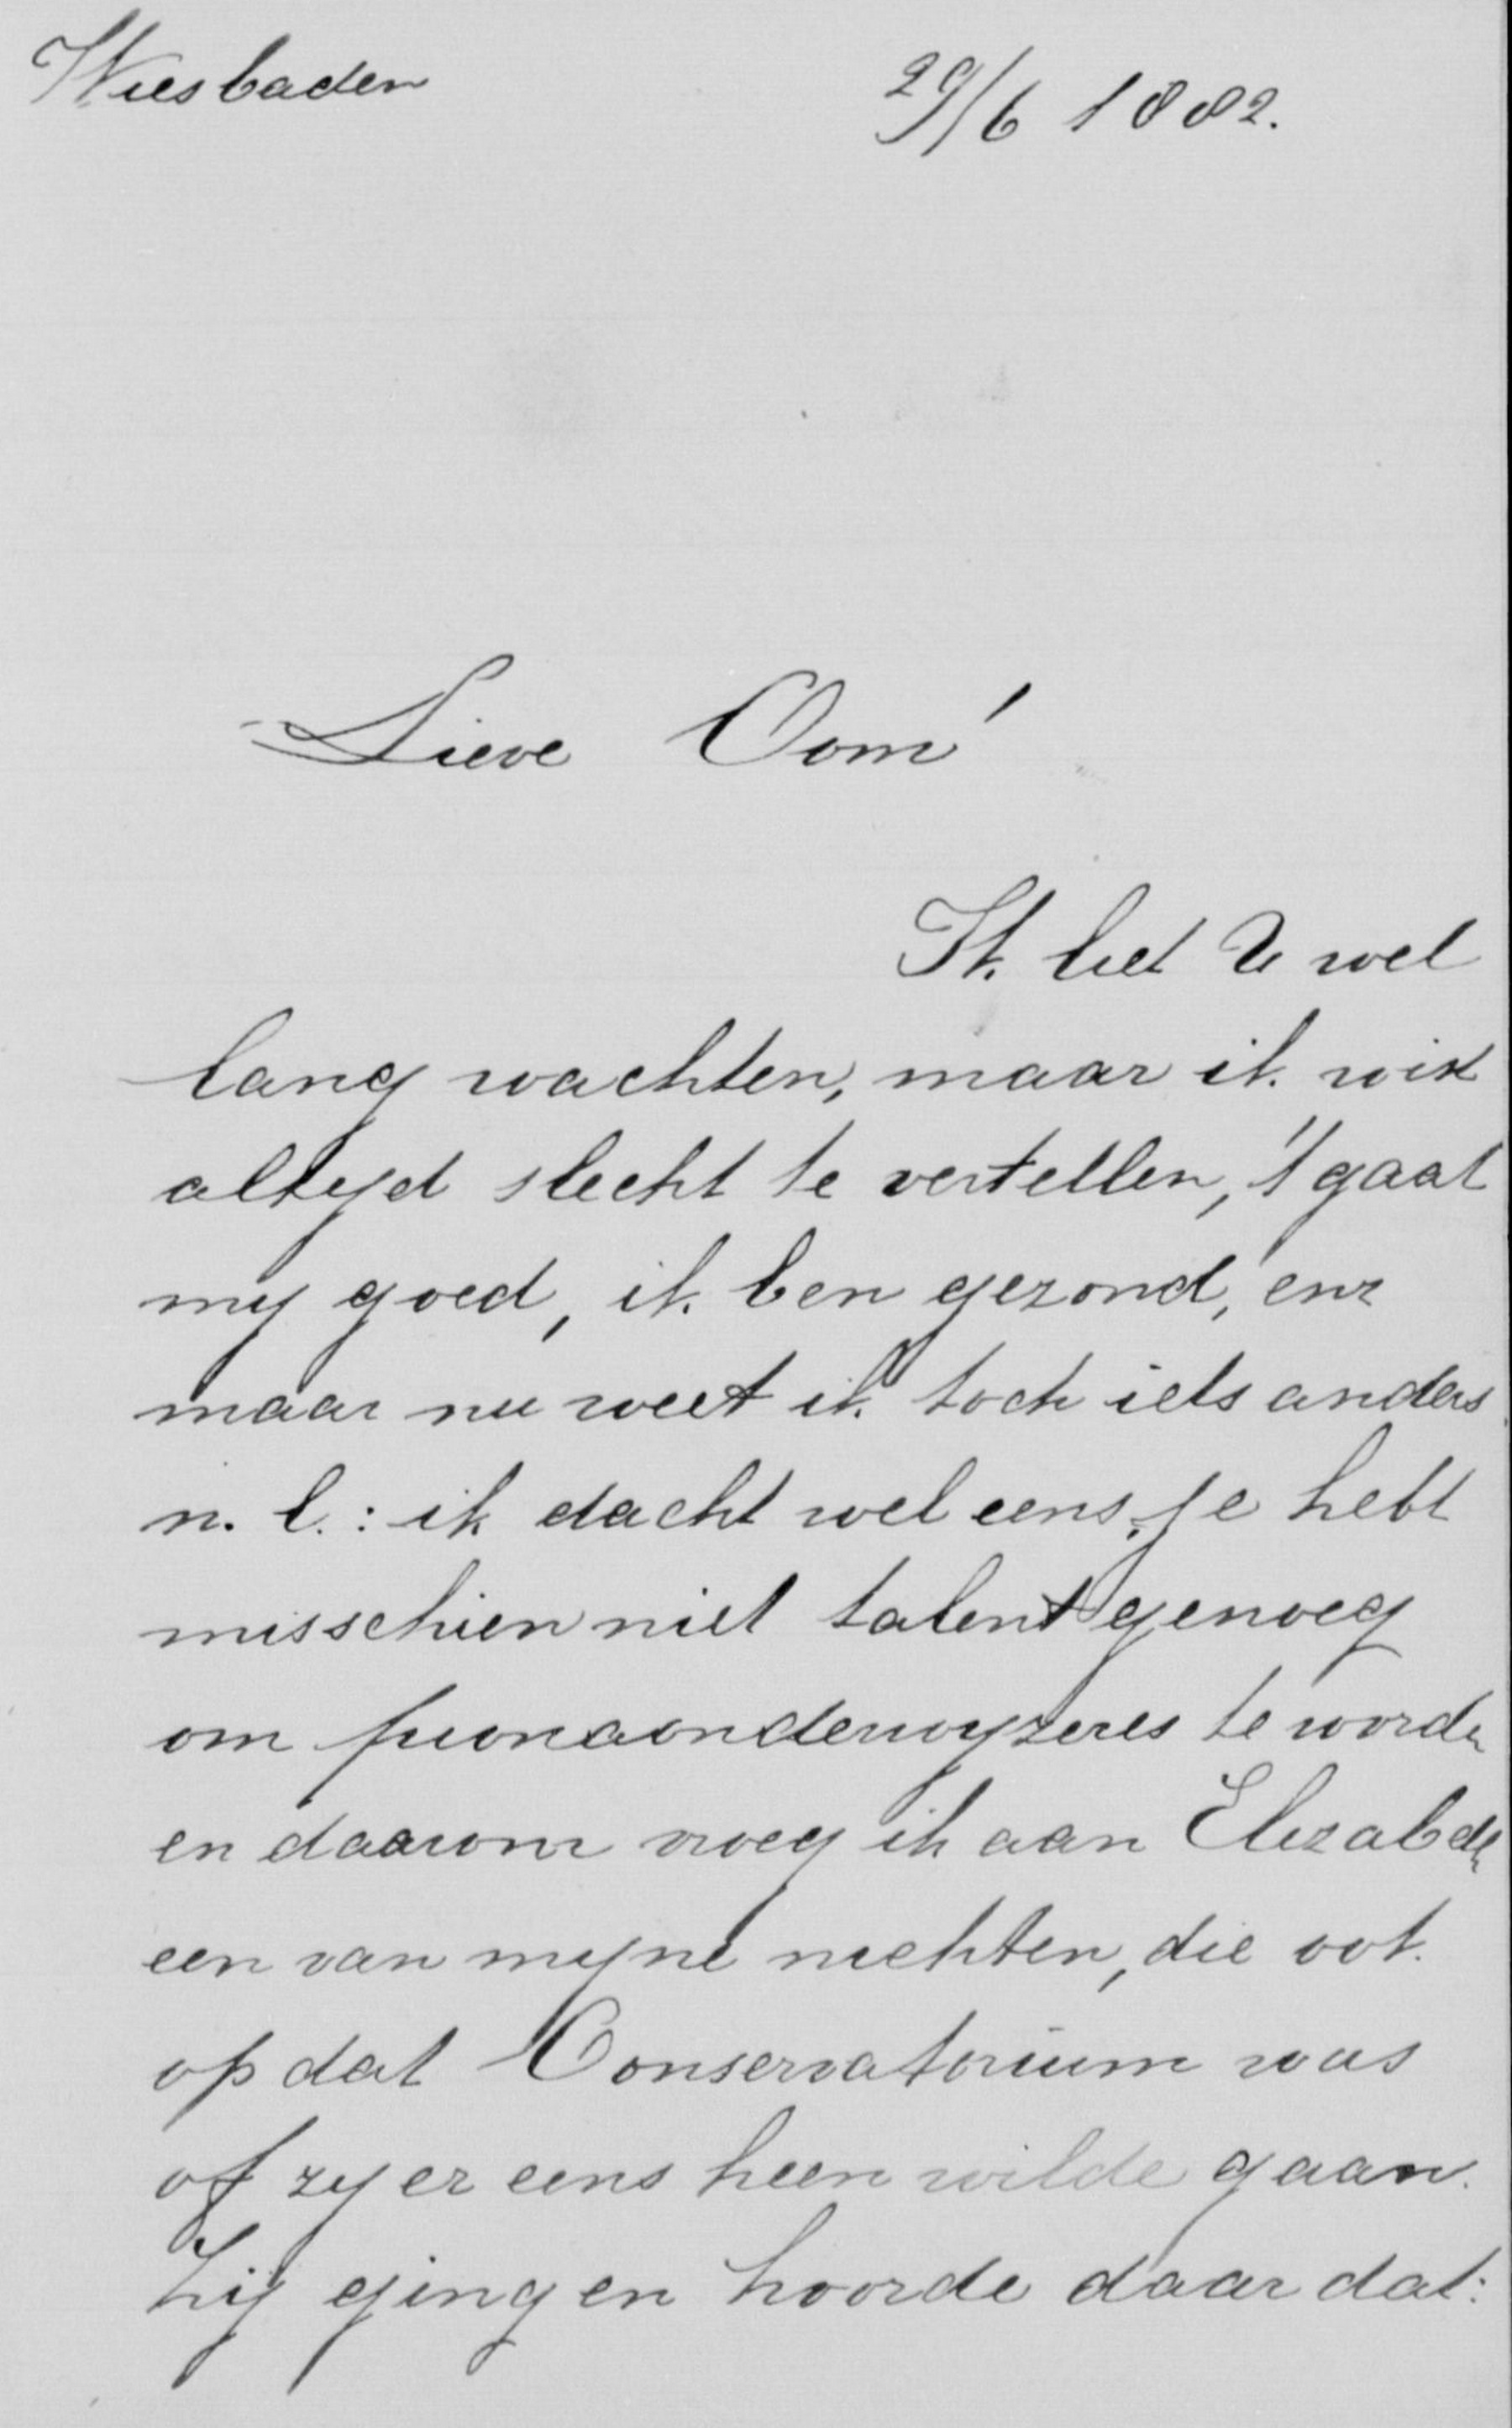 Wiesbaden 29/6 1882.
Lieve Oom'
Ik liet U wel
lang wachten, maar ik wist
altyd slecht te vertellen, 't gaat
my goed, ik ben gezond, enz
maar nu weet ik toch iets anders
n. l.: ik dacht wel eens, je hebt
misschien niet talent genoeg
om pianoonderwyzeres te worden
en daarom vroeg ik aan Elizabeth
een van myne nichten, die ook
op dat Conservatorium was
of zy er eens heen wilde gaan.
Zij ging en hoorde daar dat: